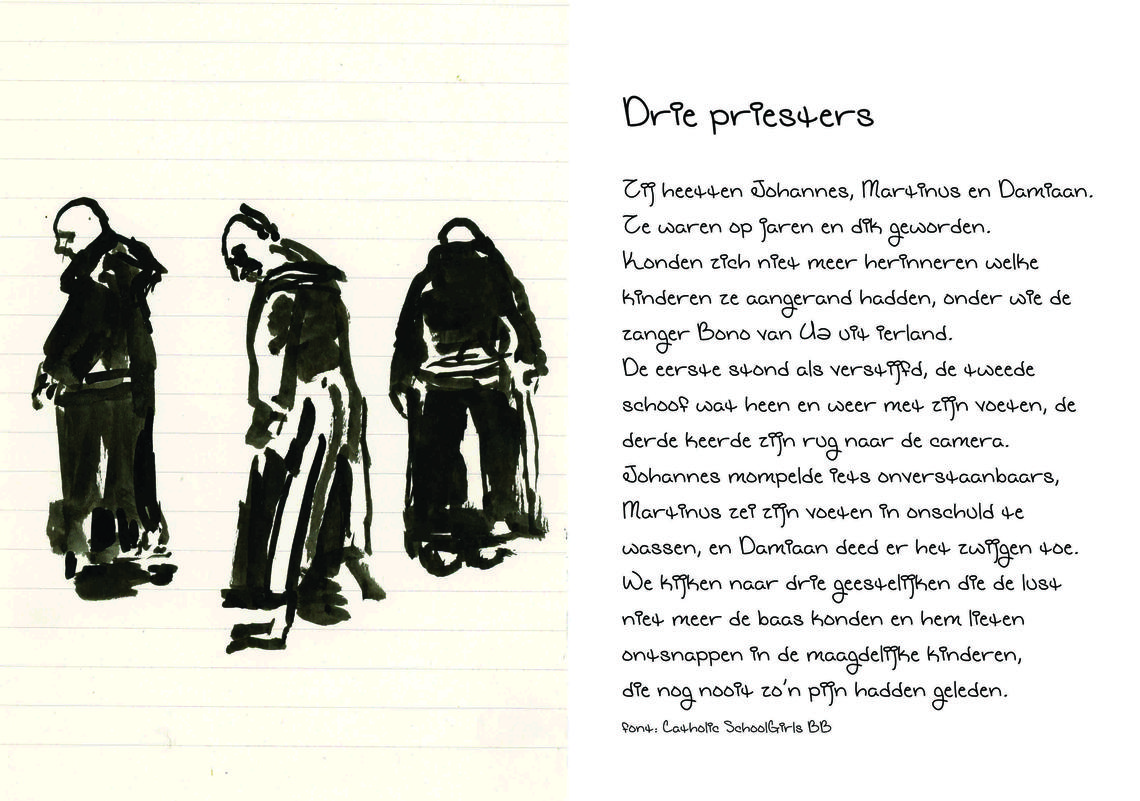 Drie priesters
Zij heetten Johannes, Martinus en Damiaan.
Ze waren op jaren en dik geworden.
Konden zich niet meer herinneren welke
kinderen ze aangerand hadden, onder wie de
zanger Bono van U2 uit ierland.
De eerste stond als verstijfd, de tweede
schoof wat heen en weer met zijn voeten, de
derde keerde zijn rug naar de camera.
Johannes mompelde iets onverstaanbaars,
Martinus zei zijn voeten in onschuld te
wassen, en Damiaan deed er het zwijgen toe.
We kijken naar drie geestelijken die de lust
niet meer de baas konden en hem lieten
ontsnappen in de maagdelijke kinderen,
die nog nooit zo'n pijn hadden geleden.
font: Catholic SchoolGirls BB